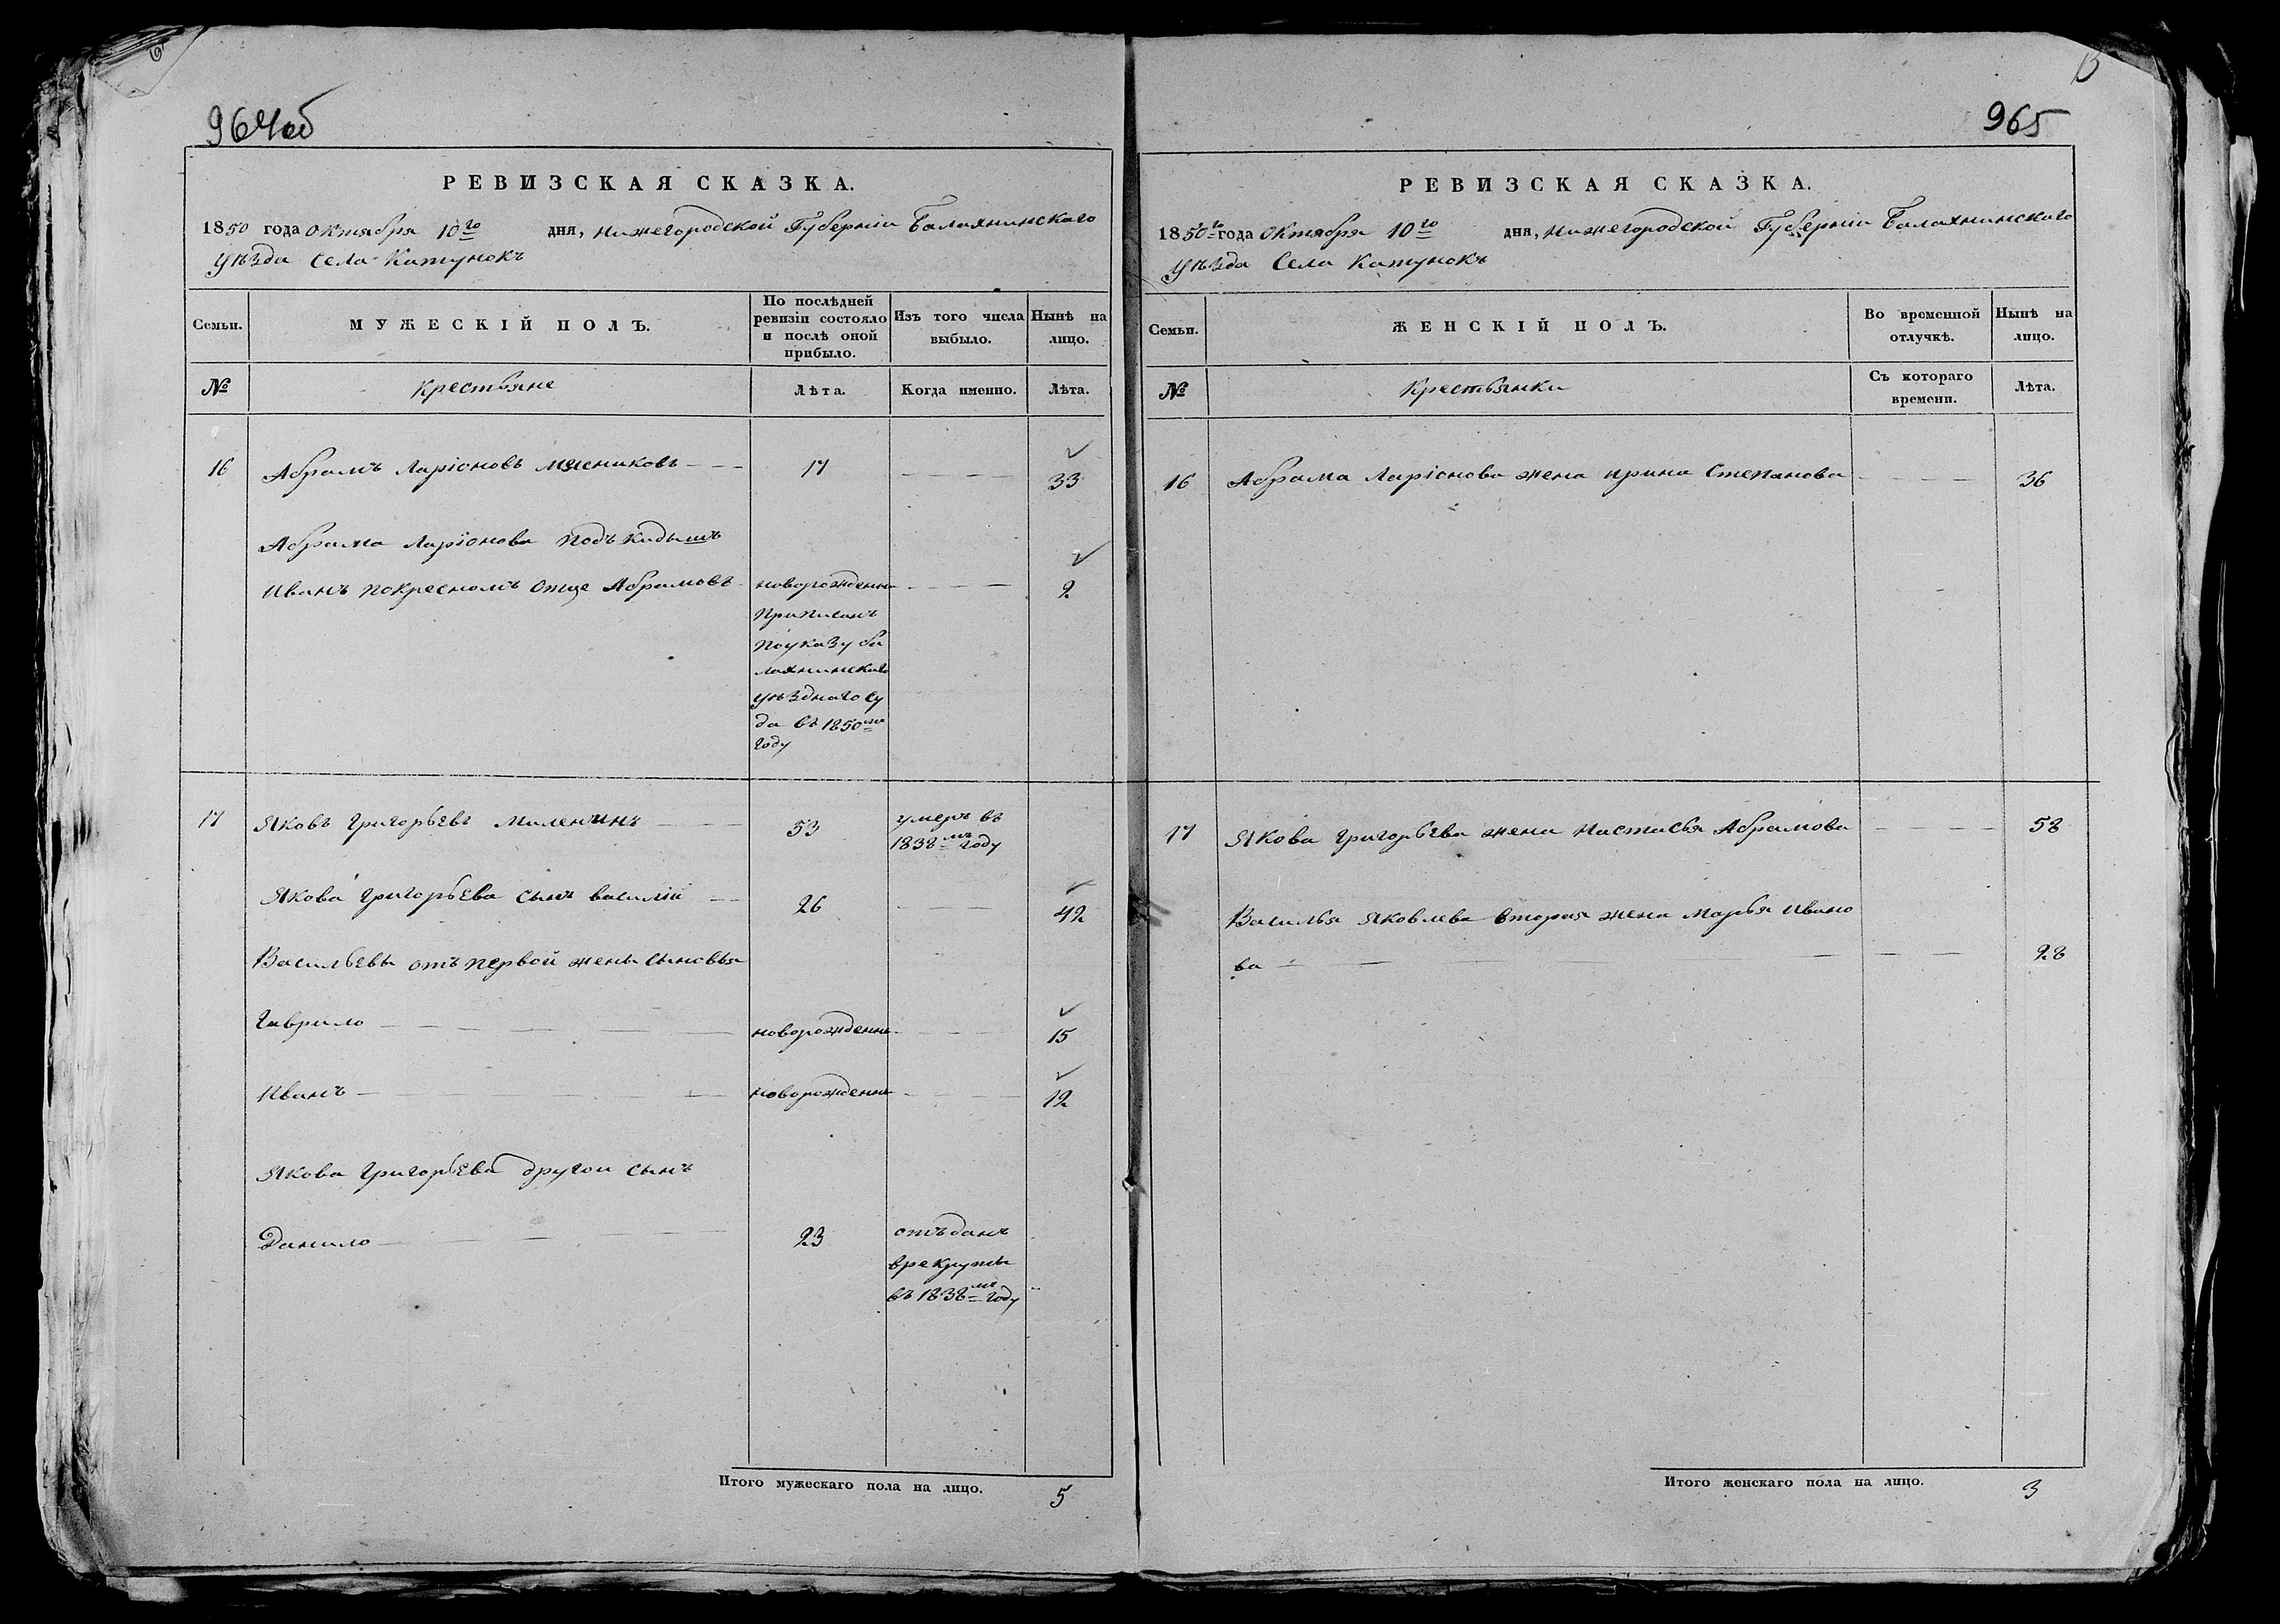 964об
РЕВИЗСКАЯ СКАЗКА.
1850 года Октября 10го дня, Нижегородской Губерніи Балахнинскаго
Уѣзда Села Катунокъ
Семьи.
МУЖЕСКІЙ ПОЛЪ.
По послѣдней
ревизіи состояло
и послѣ оной
прибыло.
Изъ того числа
выбыло.
Нынѣ на
лицо.
№
Крестьяне
Лѣта.
Когда именно.
Лѣта.
16 Абрамъ Ларіоновъ Мясниковъ 17 33
Абрама Ларіонова подъкидышъ
Иванъ покресномъ отце Абрамовъ новорожденны 2
приписанъ
поуказу ба
лахнинскаго
уѣзднаго су
да въ 1850мъ
году
17 Яковъ Григорьевъ Миленинъ 53 умеръ въ
1838мъ году
Якова Григорьева сынъ василій 26 42
Васильевы отъ первой жены сыновья
Гаврило новорожденны 15
Иванъ новорожденны 12
Якова Григорьева другои сынъ
Данило 23 отъданъ
врекруты
въ 1838мъ году
Итого мужескаго пола на лицо. 5
965
РЕВИЗСКАЯ СКАЗКА.
1850го года Октября 10го дня, Нижегородской Губерніи Балахнинскаго
Уѣзда Села Катунокъ
Семьи.
ЖЕНСКІЙ ПОЛЪ.
Во временной
отлучкѣ.
Нынѣ на
лицо.
№
Крестьянки
Съ котораго
времени.
Лѣта.
16 Абрама Ларіонова жена ирина Степанова 36
17 Якова Григорьева жена Настасья Абрамова 58
Василья Яковлева вторая жена Марья Ивано
ва 28
Итого женскаго пола на лицо. 3